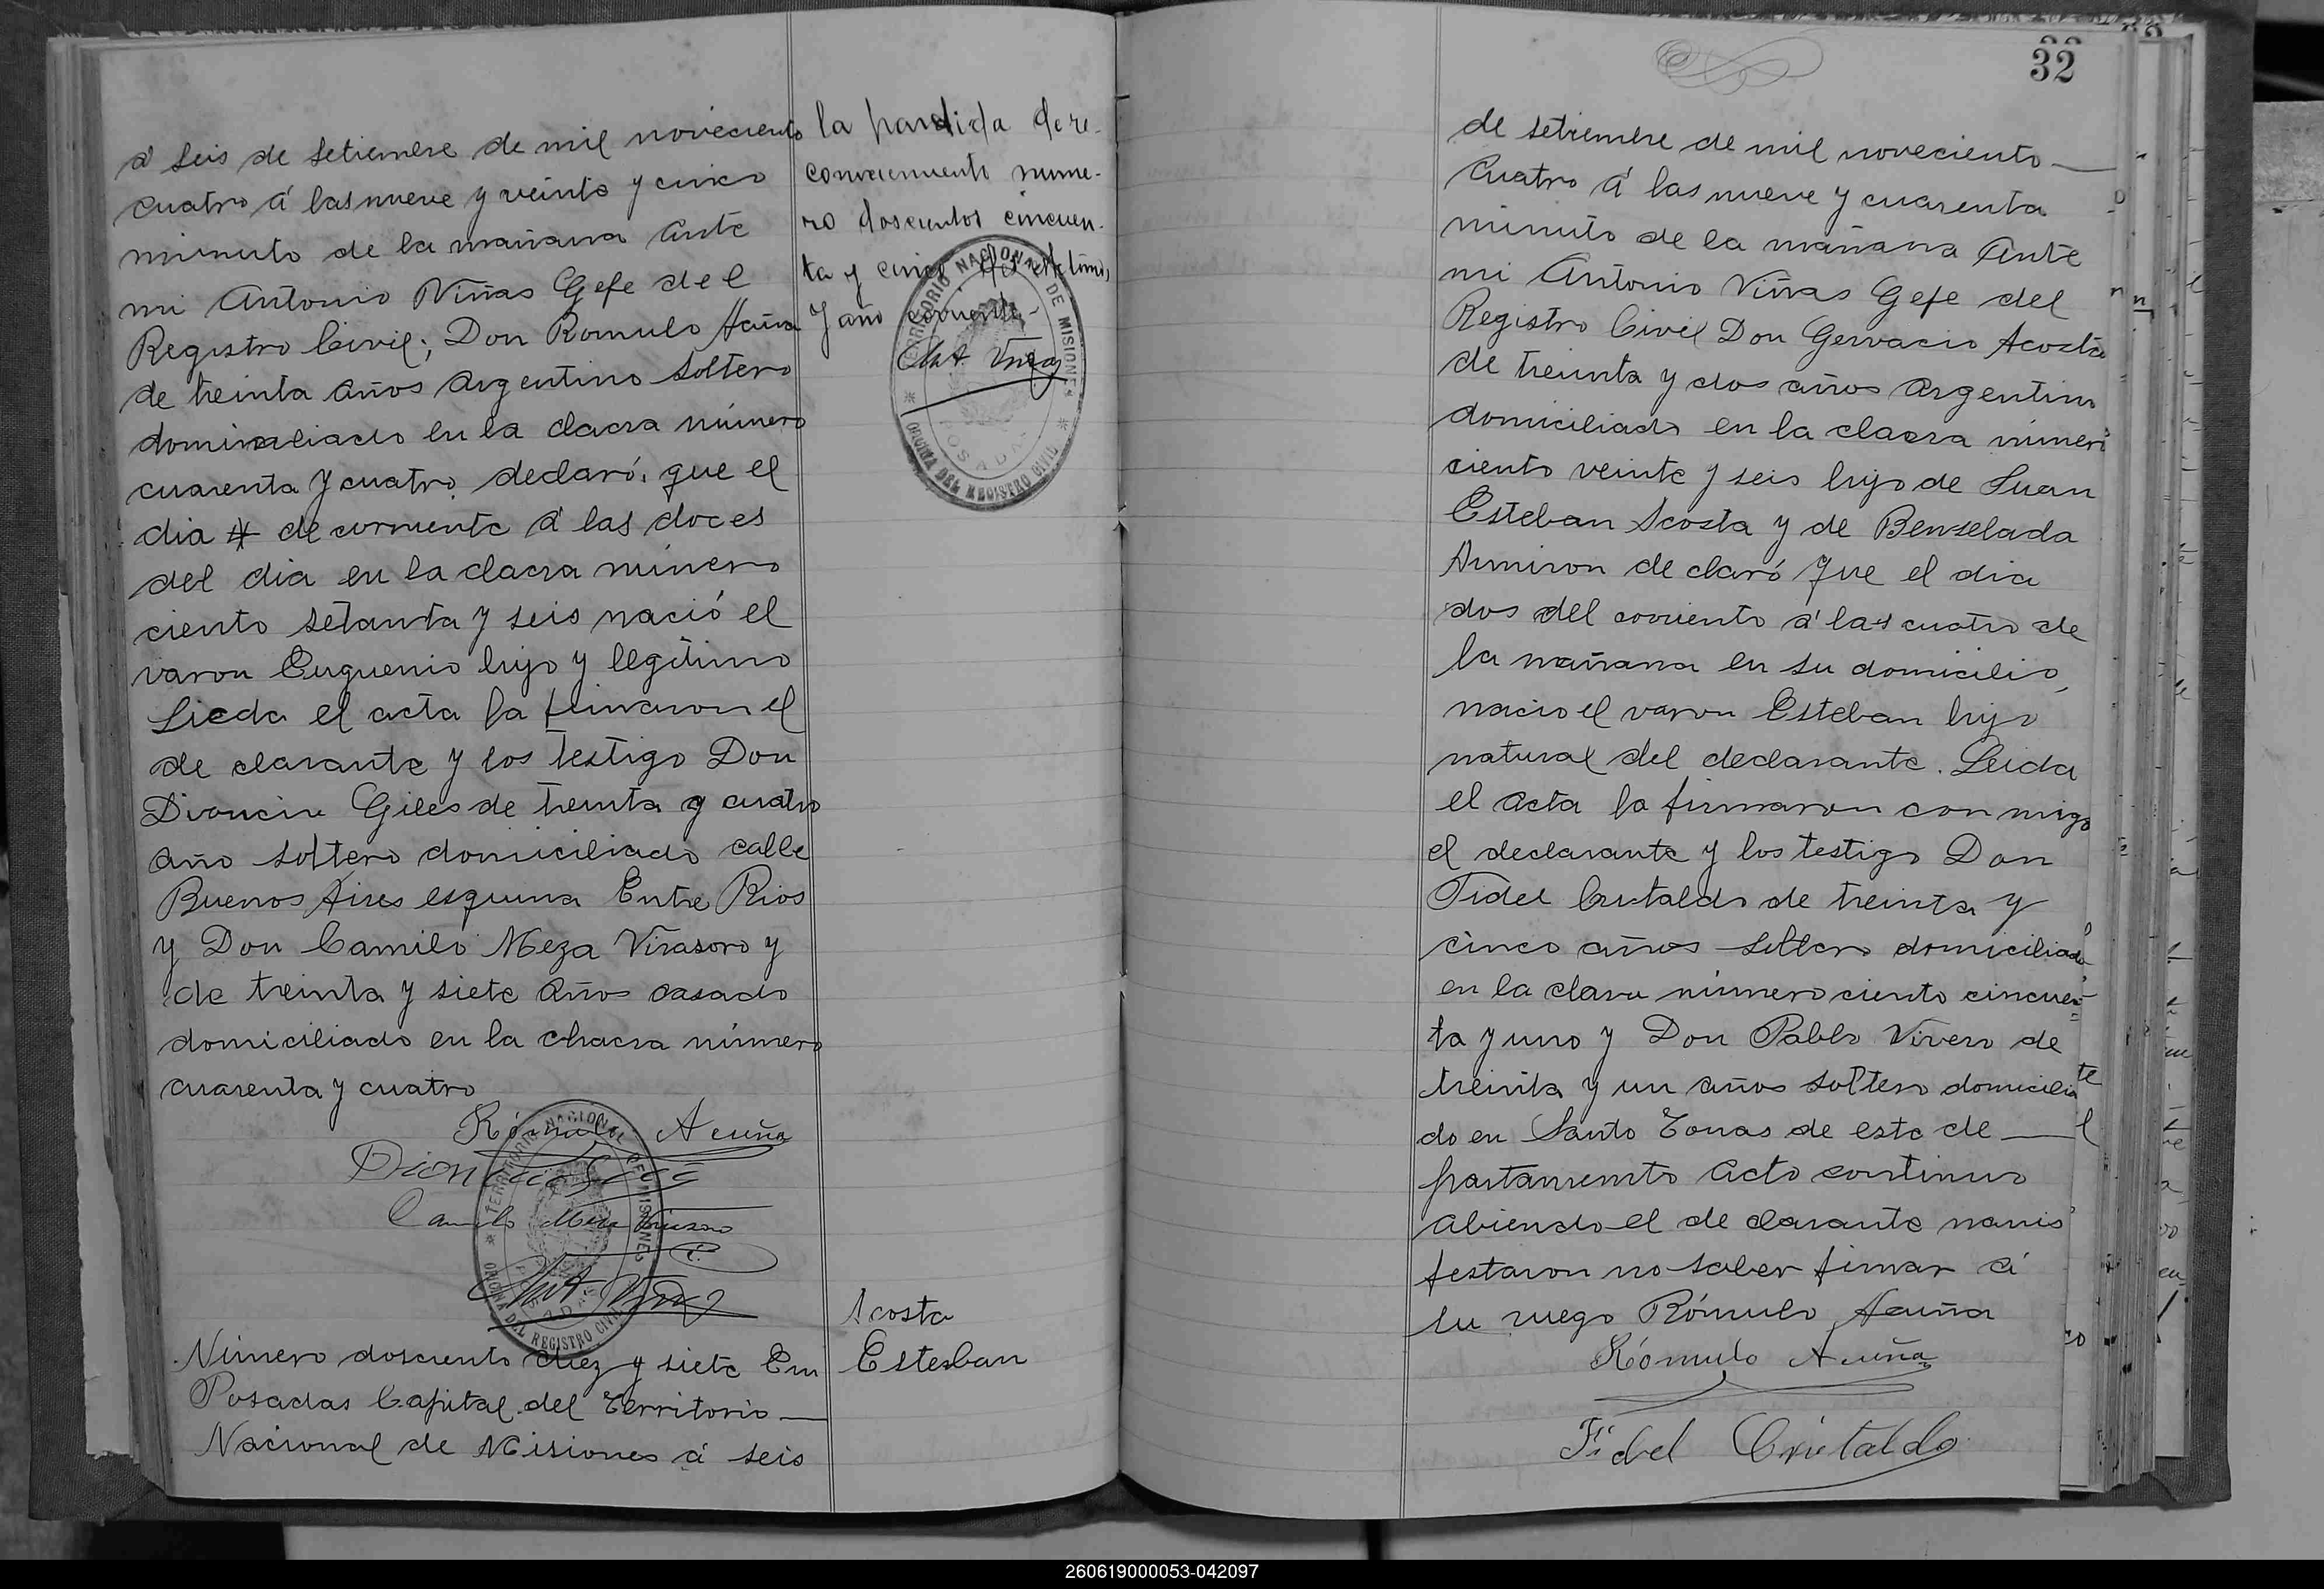 á seis de setiembre de mil noveciento
cuatro á las nueve y veinte y cinco
minuto de la mañana ante
mi Antonio Viñas Gefe del
Registro Civil; Don Romulo Acuña
de treinta años argentino soltero
domiciliado en la chacra número
cuarenta y cuatro declaró, que el
dia de corriente á las doces
del dia en la chacra número
ciento setanta y seis nació el
varon Euguenio hijo y legítimo
Lieda el acta la firmaron el
de clarante y los testigo Don
Giles de treinta y cuatro
año soltero domiciliado calle
Buenos Aires esquina Entre Rios
y Don Camilo Meza Virasoro y
de treinta y siete años casado
domiciliado en la chacra número
cuarenta y cuatro
Rómulo Acuña
Camilo Meza Virasoro
Ant. Viñas
TERRITORIO NACIONAL DE MISIONES
POSADAS
OFICINA DEL REGISTRO CIVIL
Número dosciento diez y siete En
Posadas Capital del Territorio
Nacional de Misiones á seis
la partida de re-
conocimiento nume-
ro doscientos cincuen-
ta y cinco
y año corriente-
Ant. Viñas
TERRITORIO NACIONAL DE MISIONES
POSADAS
OFICINA DEL REGISTRO CIVIL
Acosta
Esteban
32
de setiembre de mil noveciento
cuatro á las nueve y cuarenta
minuto de la mañana Ante
mi Antonio Viñas Gefe del
Registro Civil Don Gervacio Acosta
de treinta y dos años argentino
domiciliado en la chacra número
ciento veinte y seis hijo de Juan
Esteban Acosta y de Benselada
de claró que el dia
dos del corriente á las cuatro de
la mañana en su domicilio,
nacio el varon Esteban hijo
natural del declarante. Leida
el acta la firmaron con migo
el declarante y los testigo Don
Fidel Cristaldo de treinta y
cinco años soltero domiciliado
en la número ciento cincuen-
ta y uno y Don Pablo Vivero de
treinta y un años soltero domicilia
do en Santo Tomas de este de
partamento acto continuo
abiendo el de clarante manis
festaron no saber firmar á
su ruego Rómulo Acuña
Rómulo Acuña
Fidel Cristaldo
260619000053-042097